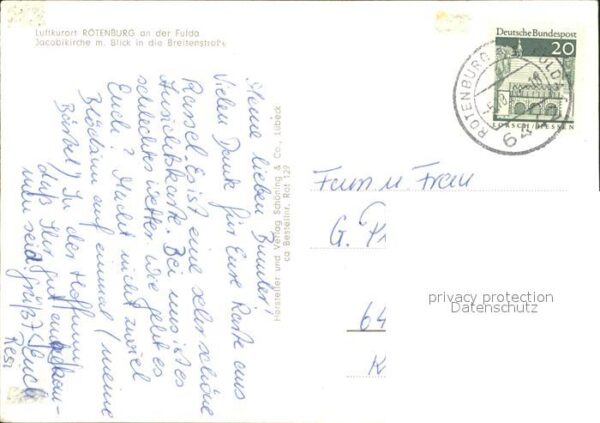 Luftkurort ROTENBURG an der Fulda
Jacobikirche m. Blick in die Breitenstraße
Deutsche Bundespost
20
LORSCH/HESSEN
ROTENBURG
FULDA
Meine lieben Bünder!
Vielen Dank für Eure Karte aus
Kassel. Es ist eine sehr schöne
Ansichtskarte. Bei uns ist es
schlechtes Wetter. Wie geht es
Euch? Macht nicht zuviel
Blödsinn auf einmal (meine
In der Hoffnung
daß Ihr gut
men seid, grüßt Euch
Resi
Hersteller und Verlag Schöning & Co., Lübeck
ca Bestellnr. Rot 129
Fam u. Frau
G.
64
privacy protection
Datenschutz